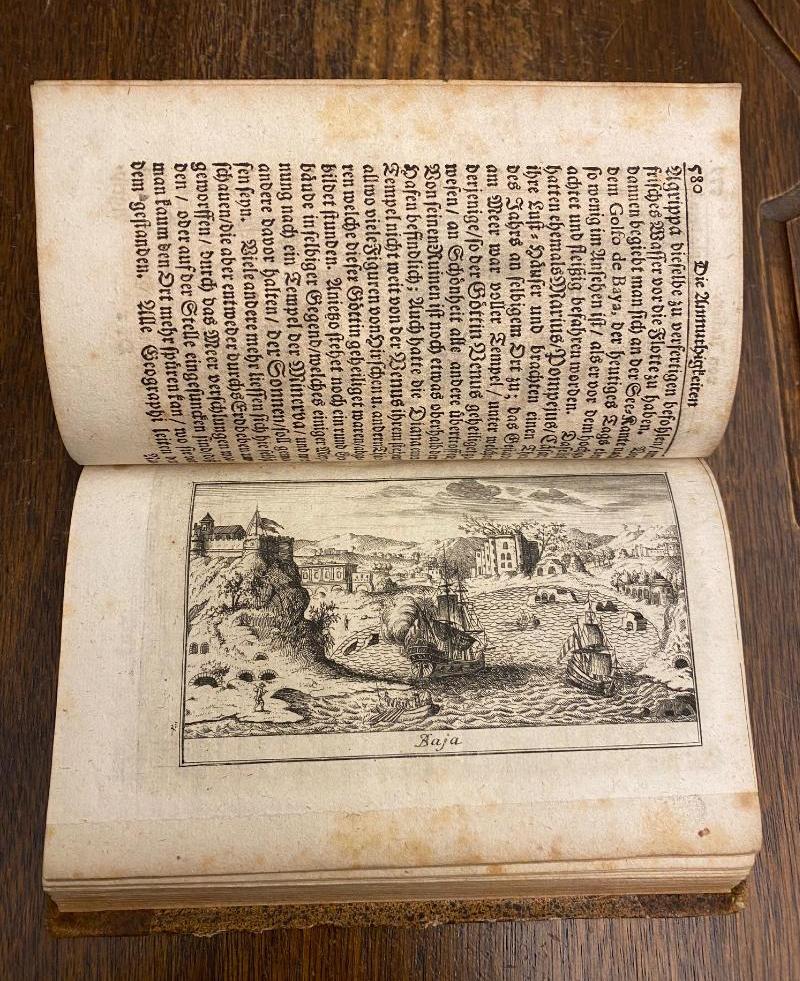 580 Die Anmuthigkeiten
Agrippa dieselbe zu verfertigen befohlen /
frisches Wasser vor die Flotte zu haben.
dannen begiebt man sich an der See
dem Golfo de Baya, der heutiges Tags
so wenig im Ansehen ist / als er vor dem
achtet und fleißig befahren worden.
hatten ehemals Marius, Pompejus,
ihre Lust-Häuser und brachten einen
des Jahrs an selbigem Ort zu; das
am Meer war voller Tempel / unter
derjenige / so der Göttin Venus
wesen / an Schönheit alle andere
Von seinen Ruinen ist noch etwas oberhalb
Hafen befindlich; Auch hatte die Diana
Tempel nicht weit von der Venus ihrem
allwo viele Figuren von Hirschen u. andern
ren welche dieser Göttin geheiliget waren /
bildet stunden. Anietzo stehet noch ein
bäude in selbiger Gegend / welches einiger
nung nach ein Tempel der Minerva / und
andere davor halten / der Sonnen / soll
sen seyn. Viele andere mehr liessen sich
schauen / die aber entweder durchs Erdbeben
geworffen / durch das Meer verschlungen
den / oder auf der Stelle eingesuncken
man kaum den Ort mehr spüren kan / wo sie
dem gestanden. Alle Geographi setzen
Baja